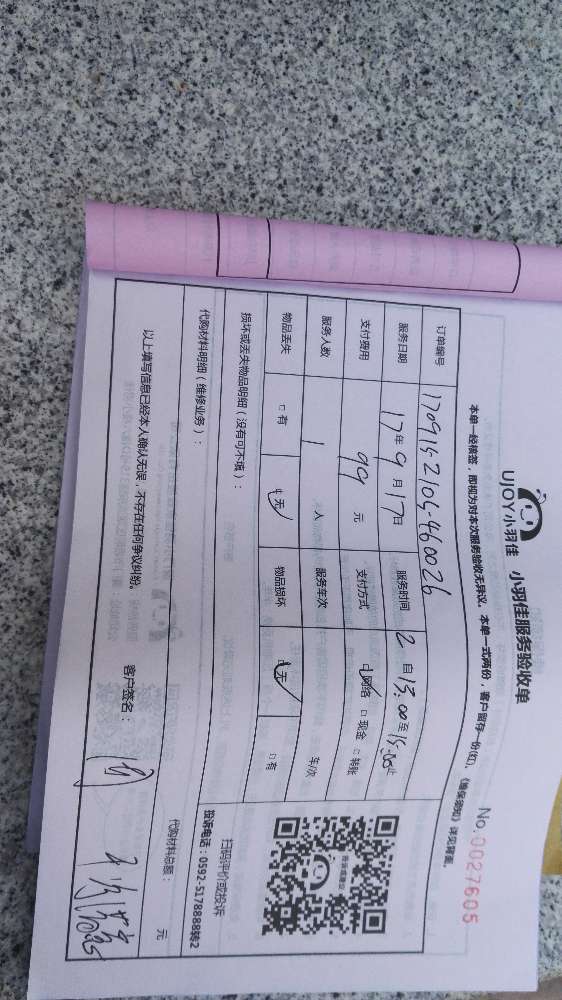 UJOY小羽佳 小羽佳服务验收单
No.0027605
本单一经核签，即视为对本次服务验收无异议。本单一式两份，客户留存一份(红)，《确保须知》详见背面。
订单编号 1709152105-460026
服务日期 17年9月17日 服务时间 2 自13:00至15:00止
支付费用 99 元 支付方式 ☑网络 □现金 □转账
服务人数 1 人 服务车次 车/次
物品丢失 □有 ☑无 物品损坏 ☑无 □有
损坏或丢失物品明细（没有可不填）：
代购材料明细（维修业务）：
代购材料总额： 元
以上填写信息已经本人确认无误，不存在任何争议纠纷。 客户签名：
投诉或建议
扫码评价或投诉
投诉电话：0592-5178888转2